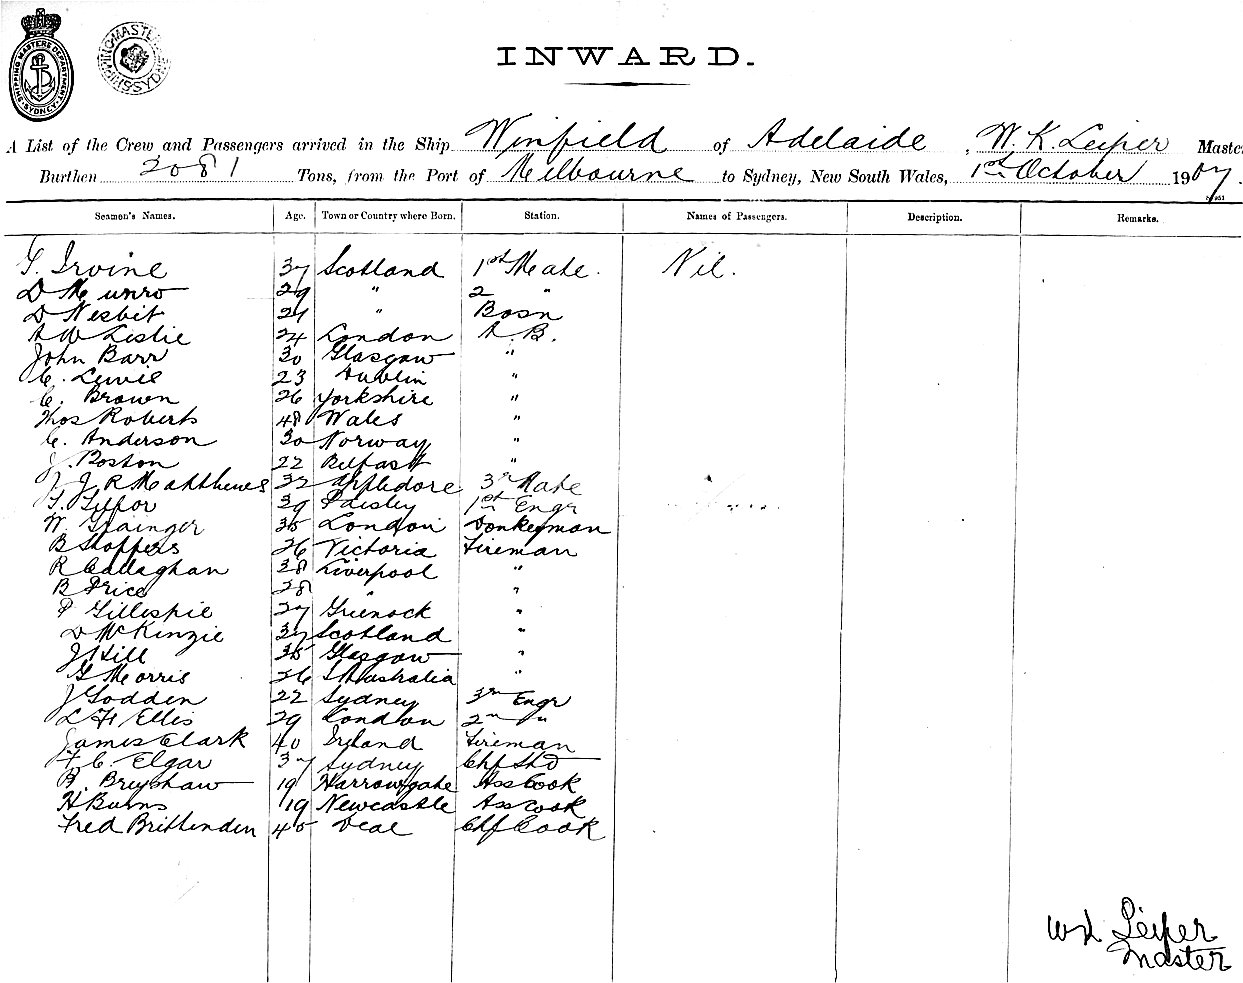 SHIPPING MASTERS DEPARTMENT SYDNEY
INWARD.
A List of the Crew and Passengers arrived in the Ship Winfield of Adelaide, W. K. Leiper Maste
Burthen 2081 Tons, from the Port of Melbourne to Sydney, New South Wales, 1st October 1907.
Seamen's Names. Age. Town or Country where Born. Station. Names of Passengers. Description. Remarks.
Irvine 37 Scotland 1st Mate. Nil.
D Munro 29 " 2 "
D Nesbit 29 " Bosn
A W Leslie 24 London A. B.
John Barr 30 Glasgow "
C. Lewie 23 Dublin "
C. Brown 26 Yorkshire "
Thos Roberts 48 Wales "
C. Anderson 30 Norway "
J. Boston 22 Belfast "
J R Matthews 32 Appledore 3rd Mate
39 Paisley 1st Engr
W. Grainger 35 London Donkeyman
B Stoffers 26 Victoria Fireman
R Callaghan 38 Liverpool "
B Price 28 " "
P Gillespie 27 Greenock "
D McKinzie 37 Scotland "
J Hill 35 Glasgow "
G Morris 26 S Australia "
J Godden 22 Sydney 3rd Engr
L H Ellis 29 London 2nd "
James Clark 40 Ireland Fireman
F. C. Elgar 37 Sydney Chf Std
B. Breyshaw 19 Harrowgate Ass Cook
H Burns 19 Newcastle Ass Cook
Fred Brittenden 45 Deal Chf Cook
W K Leiper
Master